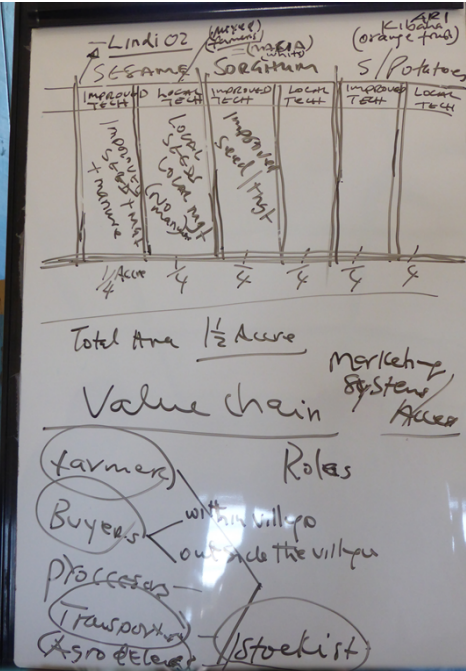 Lindi 02
ARI
Kibaha
(orange fresh)
SESAME SORGHUM S/Potatoes
IMPROVED TECH LOCAL TECH IMPROVED TECH LOCAL TECH IMPROVED TECH LOCAL TECH
Improved seeds + mgt + manure
Local seeds Local mgt (no manure)
Improved seed/mgt
1/4 Accre 1/4 1/4 1/4 1/4 1/4
Total Area 1 1/2 Accre
Marketing
System/
Value chain
Farmers Roles
Buyers within village
outside the village
Transporters Stockist